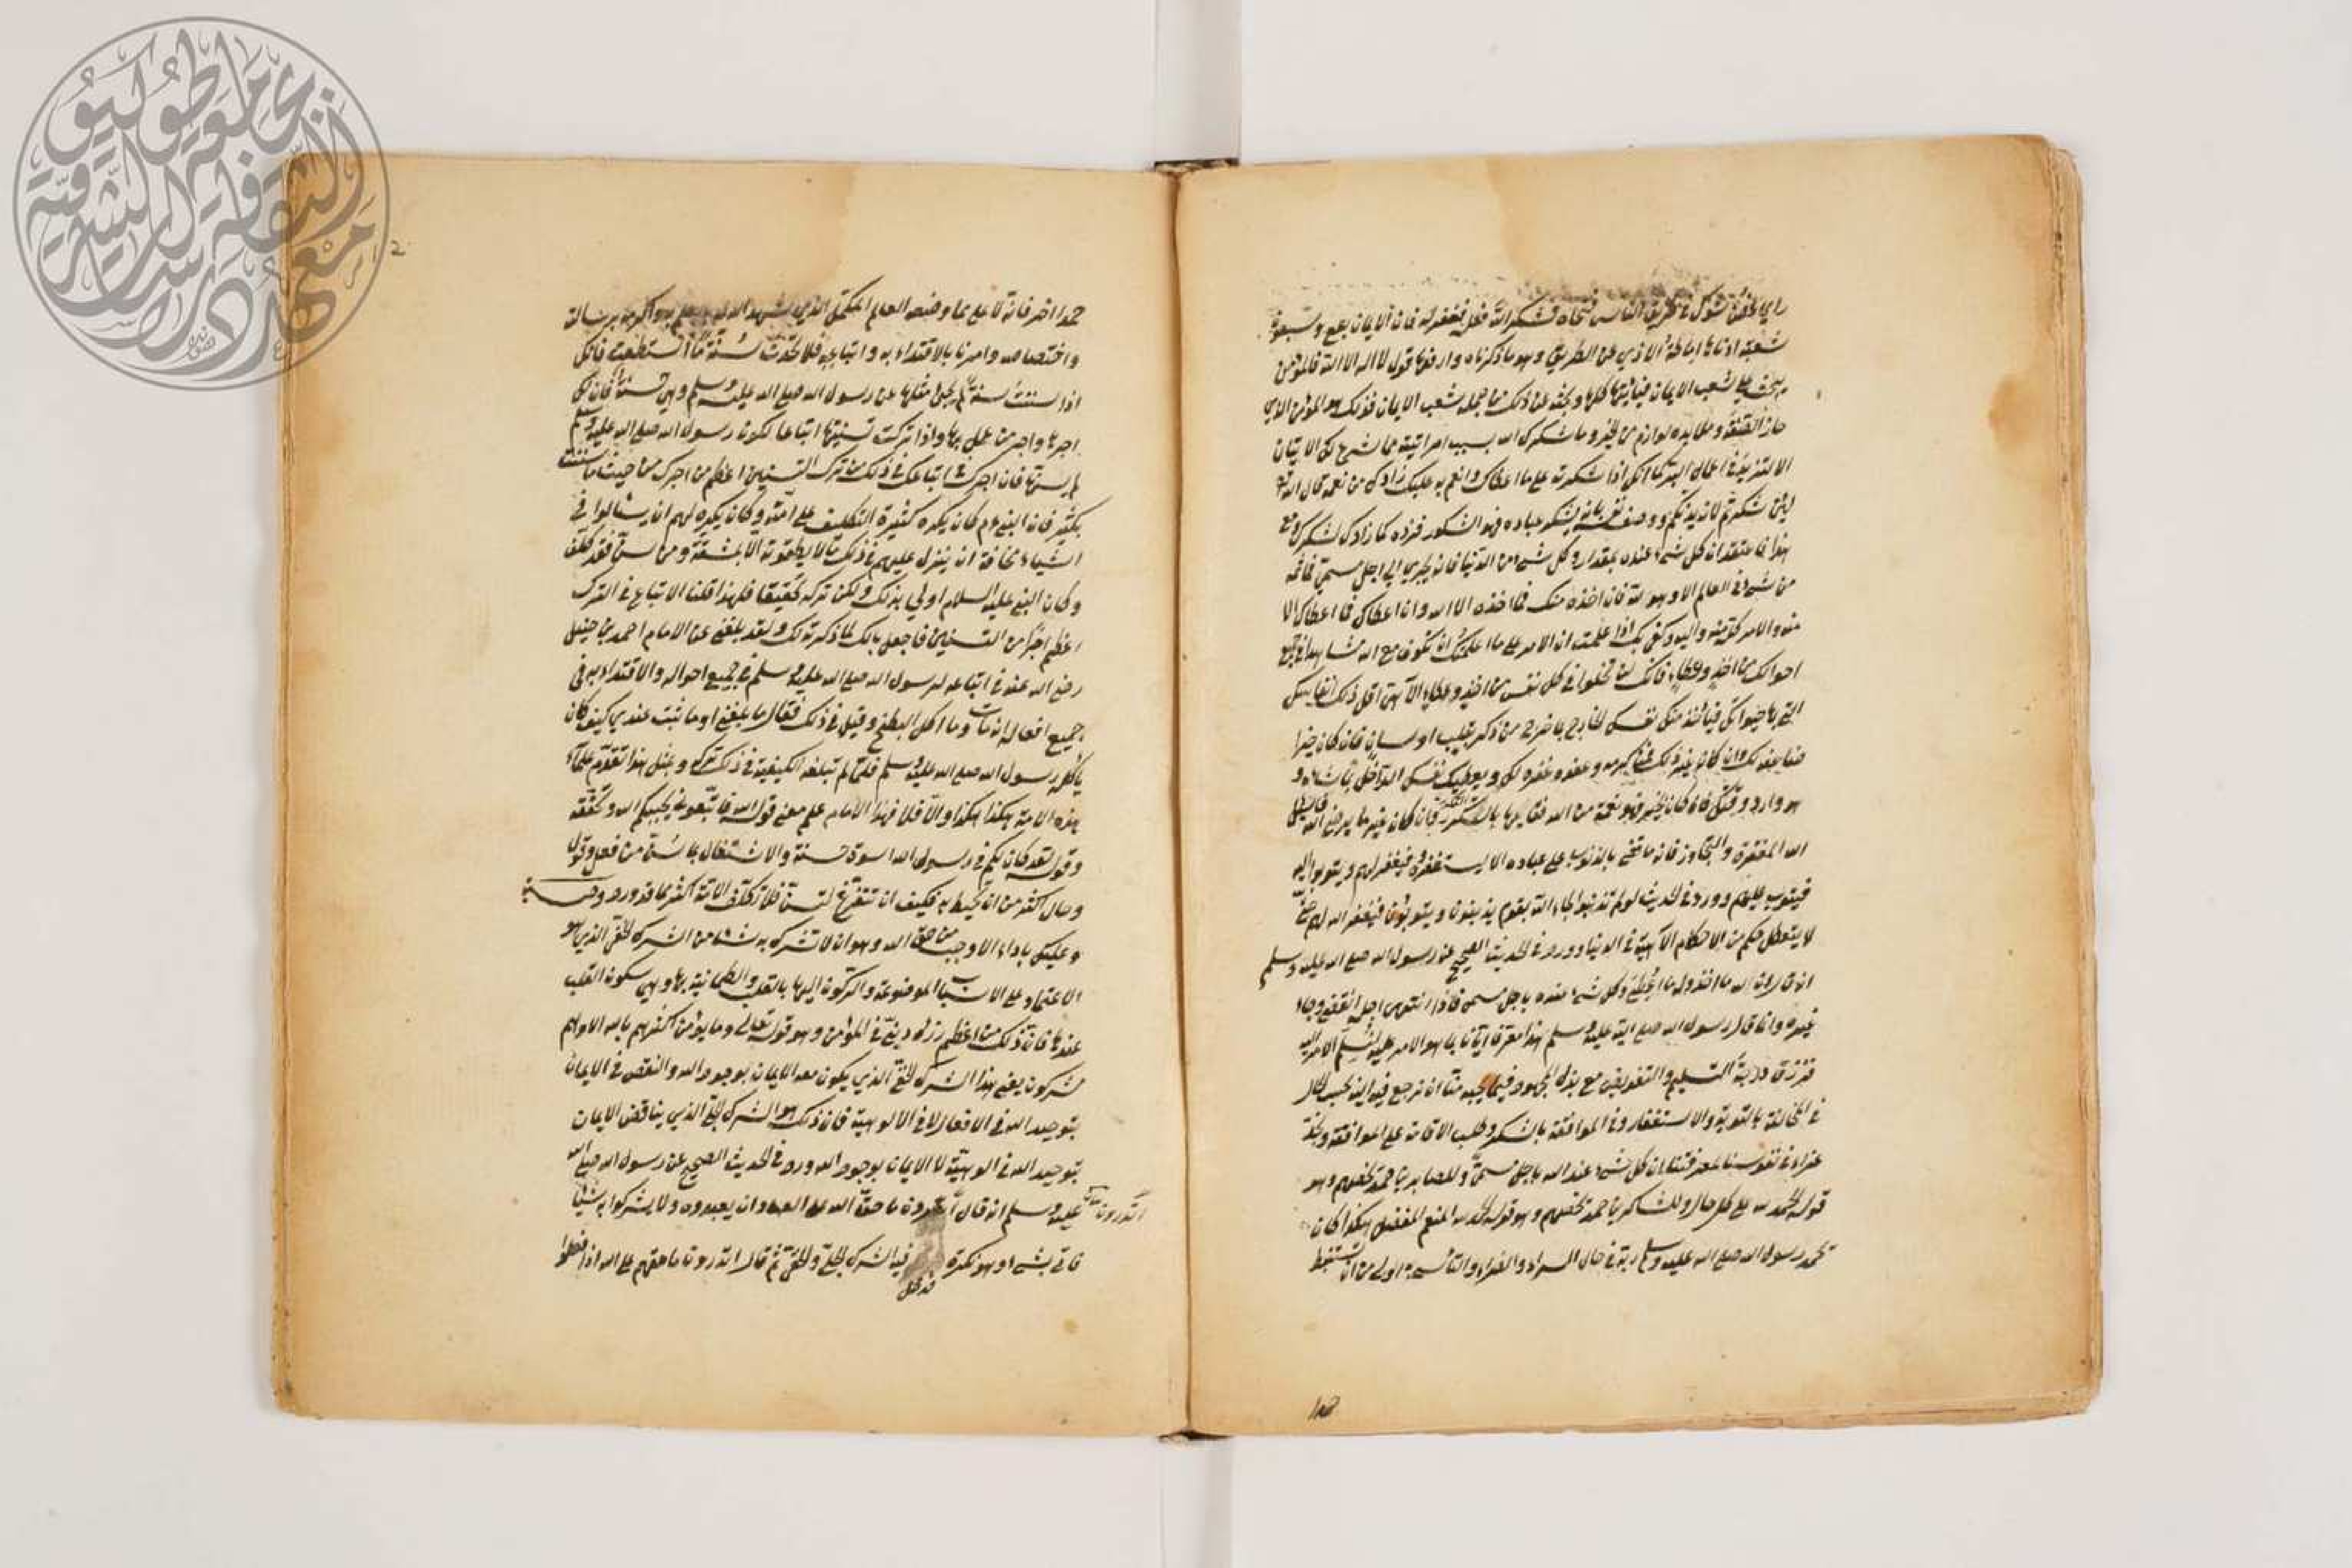 راى غصن شوك فى طريق الناس فنحاه فشكر الله فعله فغفر له فان الايمان بضع وسبعون
شعبة ادناها اماطة الاذى عن الطريق وهو ما ذكرناه وارفعها قول لا اله الا الله فالمؤمن
يبحث على شعب الايمان فياتيها كلها وبحثه عن ذلك من جملة شعب الايمان فذلك هو المؤمن الذى
حاز الصفة وملا يديه من الخير وما شكرك الله بسبب امر اتيته مما شرع لك الاتيان
الا لتزيد فى اعمال البر كما انك اذا شكرته على ما اعطاك وانعم به عليك زادك من نعمه قال الله تع
لئن شكرتم لازيدنكم ووصف نفسه بانه يشكر عباده فهو الشكور فزده كما زادك لشكرك ومع
هذا فاعتقد ان كل شئ عنده بمقدار وكل شئ من الدنيا فان يجرى الى اجل مسمى فما ثمه
من شئ فى العالم الا وهو لله فان اخذه منك فما اخذه الا الله وان اعطاك فما اعطاك الا
منه والامر كله منه واليه وكفى بك اذا علمت ان الامر على ما اعلمتك ان تكون مع الله تشاهده فى جميع
احوالك من اخذ وعطاء فانك لن تخلوا فى كل نفس من اخذ وعطاء الآهى اقل ذلك انفاسك
التى بها حيوانك فياخذ منك نفسك الخارج بما خرج من ذكر بقلب او لسان فان كان خيرا
ضاعف لك وان كان غير ذلك فمن كرمه وعفوه وغفره لك ويعطيك نفسك الداخل بما شاء و
هو وارد وقتك فان كان بخير فهو نعمة من الله فقابلها بالشكر وان كان غير ما يرضى الله فاسئل
الله المغفرة والتجاوز فانه ما قضى بالذنوب على عباده الا ليستغفروه فيغفر لهم ويتوبوا اليه
فيتوب عليهم وورد فى الحديث لو لم تذنبوا لجاء الله بقوم يذنبون ويتوبون فيغفر الله لهم حتى
لا يتعطل حكم من الاحكام الالهية فى الدنيا وورد فى الحديث الصحيح عن رسول الله صلى الله عليه وسلم
انه قال ان لله ما اخذ وله ما اعطى وكل شئ عنده باجل مسمى فاذا انتهى اجله انقضى وجاء
غيره وانما قال رسول الله صلى الله عليه وسلم هذا معرفا ايانا بما هو الامر عليه لنسلم الامر اليه
فنرزق درجة التسليم والتفويض مع بذل المجهود فيما يحب منا ان نرجع فيه اليه بحسب الحال
فى المخالفة بالتوبة والاستغفار وفى الموافقة بالشكر وطلب الاقامة على الموافقة ونجد
عزاء فى نفوسنا بمعرفتنا بان كل شئ عند الله باجل مسمى وللصابرين حمد يخصهم وهو
قولهم الحمد لله على كل حال وللشاكرين حمد يخصهم وهو قولهم الحمد لله المنعم المفضل هكذا كان
يحمد رسول الله صلى الله عليه وسلم ربه فى حال السراء والضراء والتأسى به اولى من ان تستنبط
118
2
حمدا اخر فانه لا اعلى مما وضعه العالم المكمل الذى شهد الله له بالعلم به واكرمه برسالته
واختصاصه وامرنا بالاقتداء به واتباعه فلا تحدث سنة ما استطعت فانك
اذا سننت سنة لم يجئ مثلها عن رسول الله صلى الله عليه وسلم وهى حسنة فان لك
اجرها واجر من عمل بها واذا تركت تسنينها اتباعا لكون رسول الله صلى الله عليه وسلم
لم يسنها فان اجرك فى اتباعك فى ذلك من ترك التسنين اعظم من اجرك من حيث ما سننت
بكثير فان النبى عم كان يكره كثرة التكليف على امته وكان يكره لهم ان يسئالوا فى
اشياء مخافة ان ينزل عليهم فى ذلك ما لا يطيقونه الا بمشقة ومن سن فقد كلف
وكان النبى عليه السلام اولى بذلك ولكن تركه تخفيفا فلهذا قلنا الاتباع فى الترك
اعظم اجرا من التسنين فاجعل بالك لما ذكرته لك ولقد بلغنى عن الامام احمد بن حنبل
رضى الله عنه فى اتباعه لرسول الله صلى الله عليه وسلم فى جميع احواله والاقتداء به فى
جميع افعاله انه مات وما اكل البطيخ وقيل فى ذلك فقال ما بلغنى او ما ثبت عندى كيف كان
ياكله رسول الله صلى الله عليه وسلم فلما لم تبلغه الكيفية فى ذلك تركه وبمثل هذا تقدم علماء
هذه الامة هكذا هكذا والا فلا فهذا الامام علم معنى قوله الله فاتبعونى يحببكم الله وتحققه
وقوله لقد كان لكم فى رسول الله اسوة حسنة والاشتغال بما سن من فعل وقول
وحال اكثر من ان نحيط به فكيف ان نتفرغ لنسن فلا تكلف الامة اكثر مما قد ورد وصية
وعليك باداء الاوجب من حق الله وهو ان لا تشرك به شيئا من الشرك الخفى الذى هو
الاعتماد على الاسباب الموضوعة والركون اليها بالقلب والطمانينة بها وهى سكون القلب
عندها فان ذلك من اعظم رزية دينية فى المؤمن وهو قوله تعالى وما يؤمن اكثرهم بالله الا وهم
مشركون يعنى هذا الشرك الخفى الذى يكون معه الايمان بوجود الله والنقص فى الايمان
بتوحيد الله فى الافعال لا فى الالوهية فان ذلك هو الشرك الجلى الذى يناقض الايمان
بتوحيد الله فى الوهيته لا الايمان بوجود الله ورد فى الحديث الصحيح عن رسول الله صلى الله
عليه وسلم انه قال اتدرون ما حق الله على العباد ان يعبدوه ولا يشركوا به شيئا
اتدرون
فاتى بشئ وهو نكرة فدخل فيه الشرك الجلى والخفى ثم قال اتدرون ما حقهم على الله اذا فعلوا
فدخل